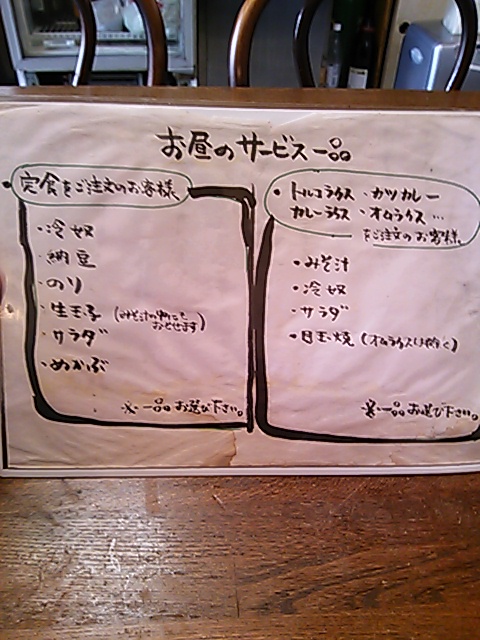 お昼のサービス一品
・定食をご注文のお客様
・冷奴
・納豆
・のり
・生玉子 (みそ汁の中にも おとせます)
・サラダ
・めかぶ
※一品お選び下さい。
・トルコライス ・カツカレー
カレーライス ・オムライス …
をご注文のお客様
・みそ汁
・冷奴
・サラダ
・目玉焼 (オムライスは除く)
※一品お選び下さい。